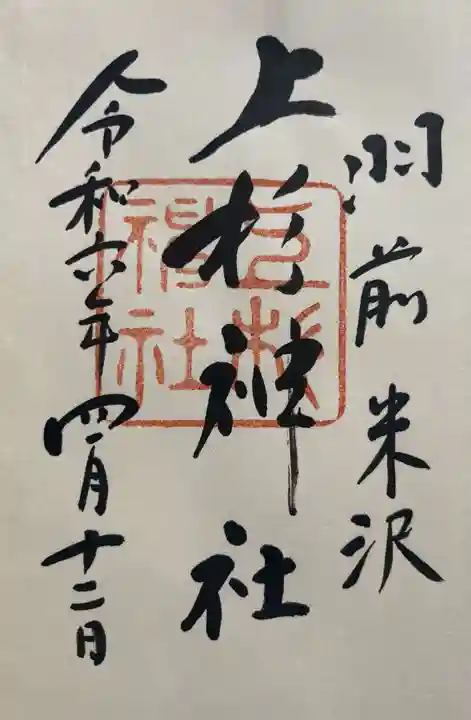 羽前 米沢
上杉神社
令和六年 四月十二日
上杉
神社